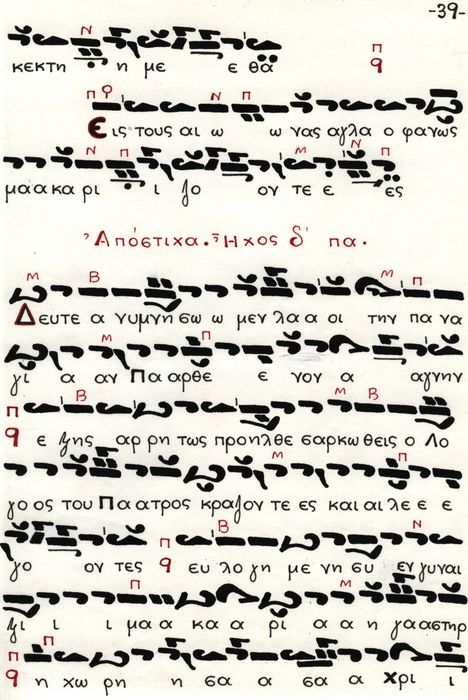 -39-
κεκτη η με ε θα
Εις τους αι ω ω νας αγλα ο φανως
μα α κα ρι ι ζο ον τε ε ες
Ἀπόστιχα. Ἦχος δ' πα.
Δευτε α νυμνη σω ω μεν λα α οι την πα να
γι α αν Πα αρθε ε νον α αγνην
ε ξης αρ ρη τως προηλθε σαρκωθεις ο Λο
γο ος του Πα ατρος κραζον τε ες και αι λε ε ε
γο ον τες ευ λο γη με νη συ εν γυναι
ξι ι ι μα α κα α ρι α α η γα αστηρ
η χω ρη η σα α σα α χρι ι